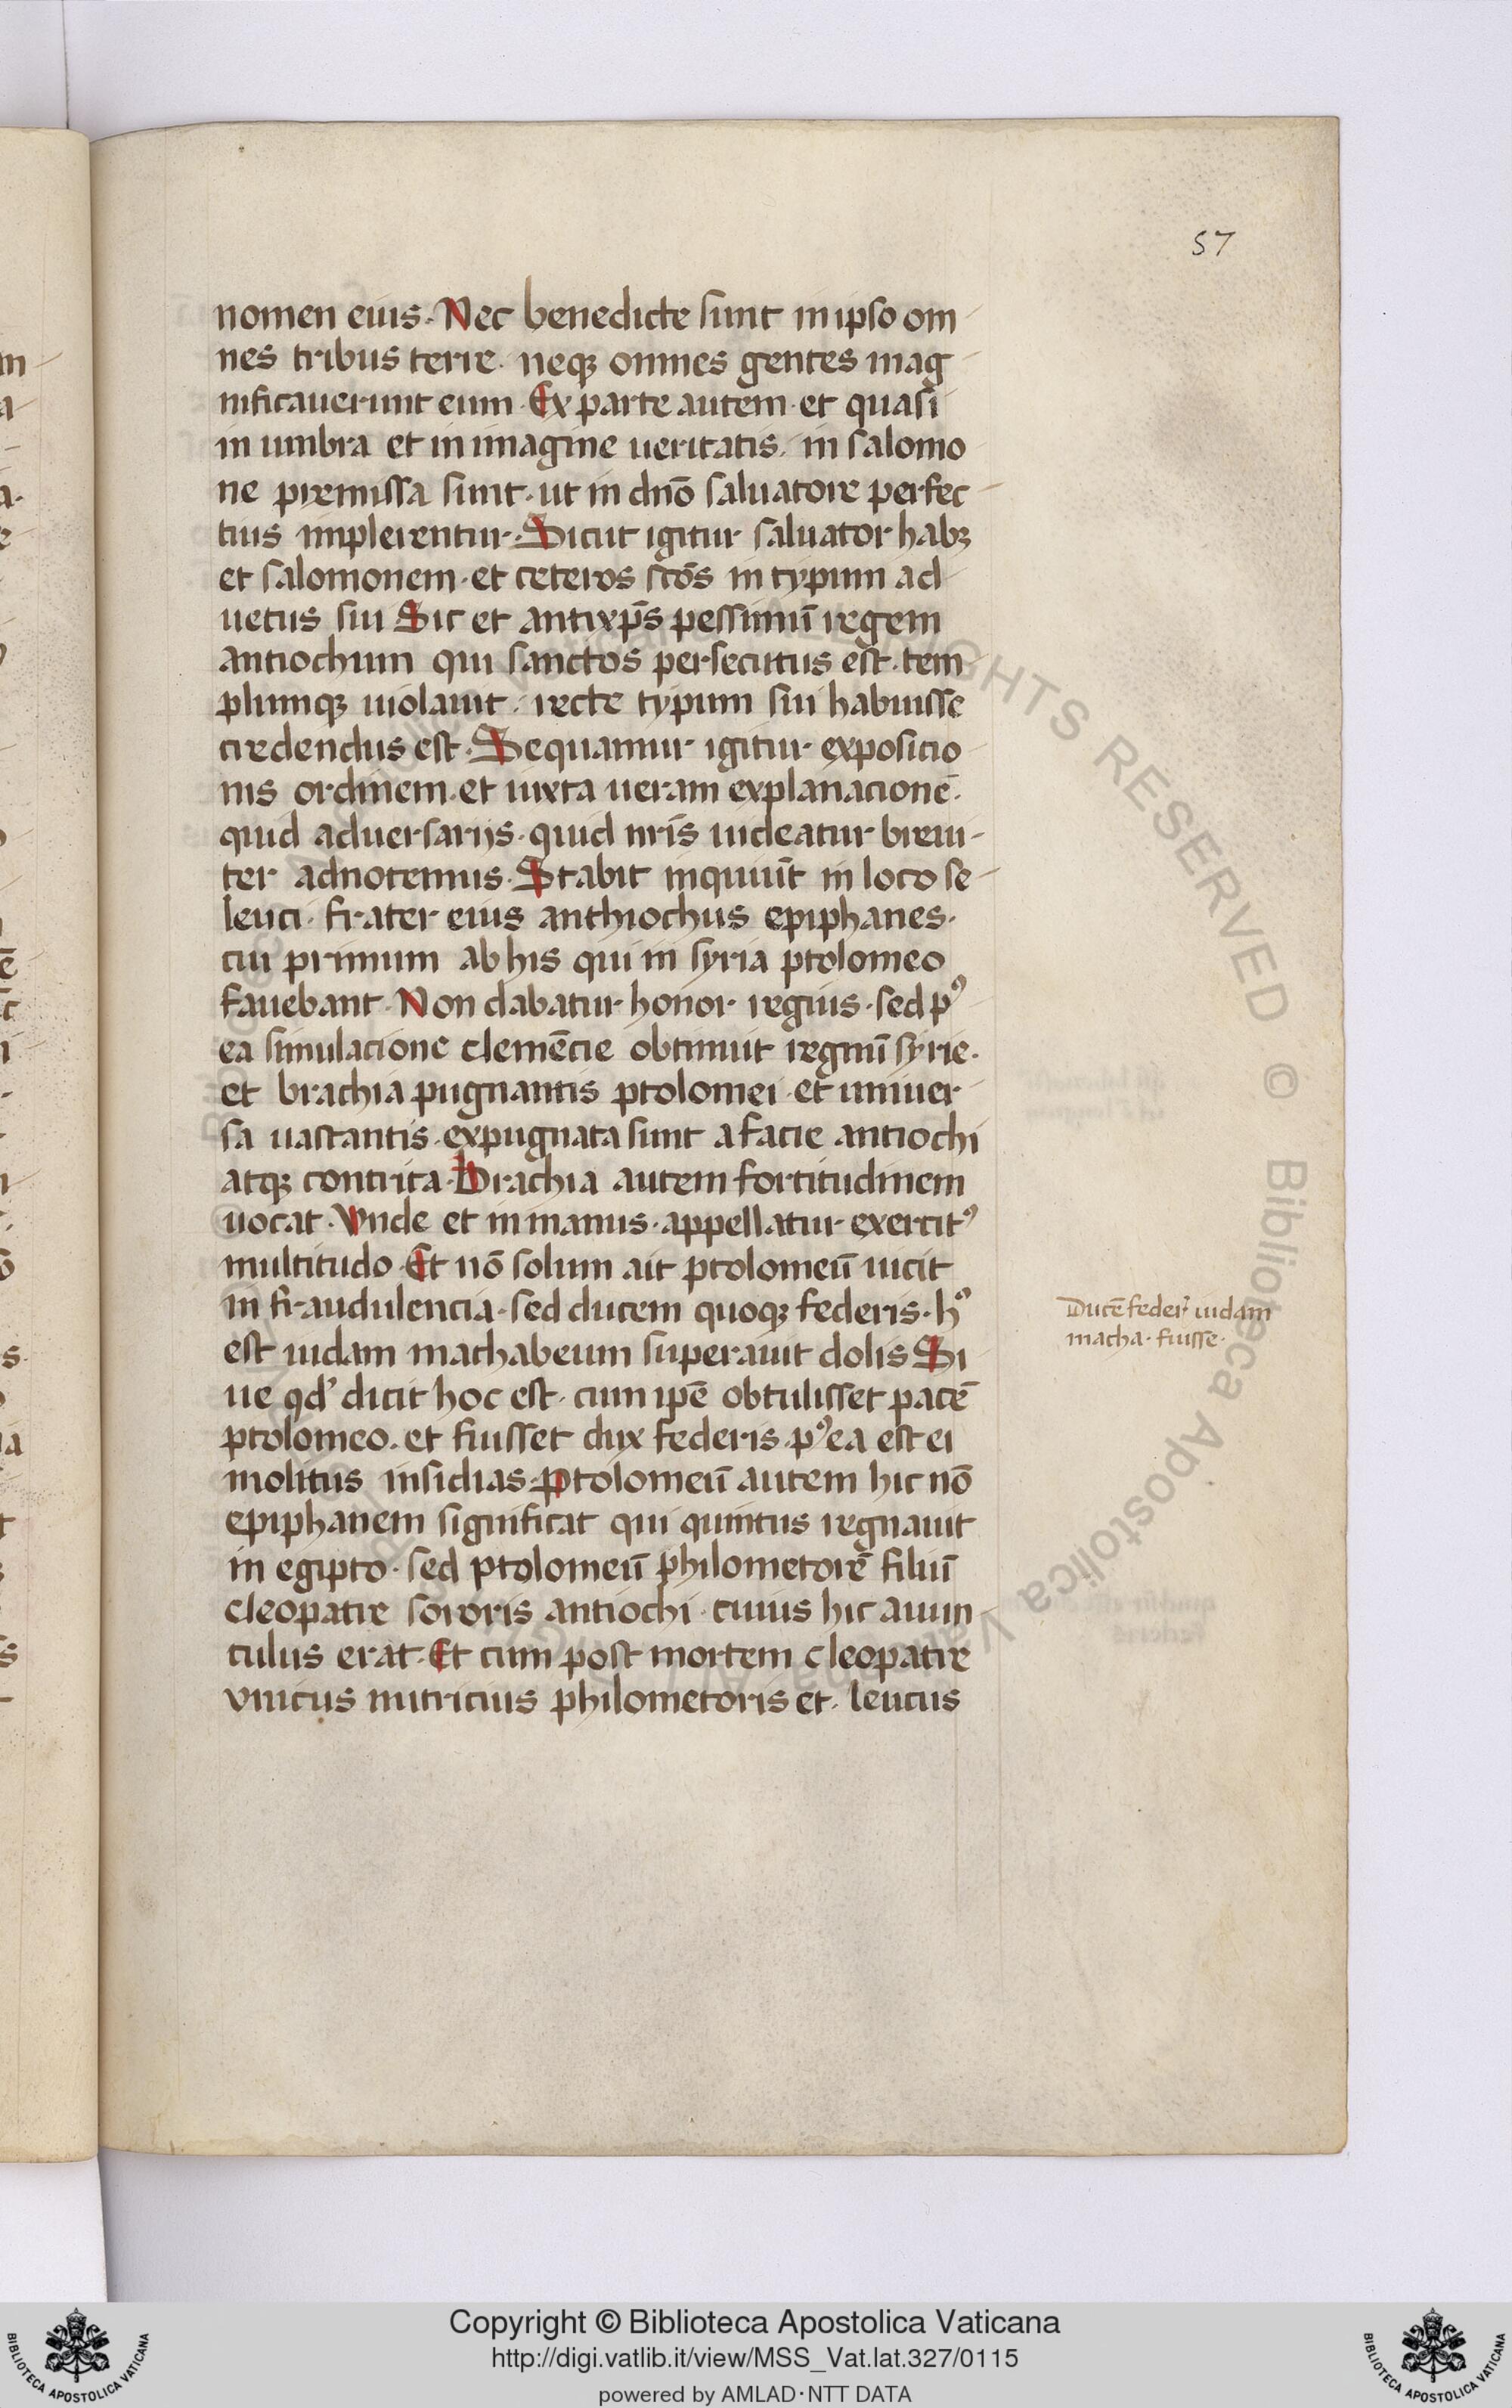 57
nomen eius. Nec benedicte sunt in ipso om
nes tribus terre. neqꝫ omnes gentes mag
nificauerunt eum. Ex parte autem. et quasi
in umbra et in imagine ueritatis. in salomo
ne premissa sunt. ut in dn̄o saluatore perfec
tius implerentur. Sicut igitur saluator habꝫ
et salomonem. et ceteros sc̄os in typum ad
uetus sui Sic et antixp̄s pessimū regem
antiochum qui sanctos persecutus est. tem
plumqꝫ uiolauit. recte typum sui habuisse
credendus est. Sequamur igitur exposicio
nis ordinem. et iuxta ueram explanacionē.
quid aduersarijs. quid nr̄is uideatur breui-
ter adnotemus. Stabit inquiūt in loco se
leuci. frater eius anthiochus epiphanes.
cui primum ab his qui in syria ptolomeo
fauebant. Non dabatur honor regius. sed pꝰ
ea simulacione clemēcie obtinuit regnū syrie.
et brachia pugnantis ptolomei. et uniuer
sa uastantis. expugnata sunt a facie antiochi
atqꝫ contrita. Brachia autem fortitudinem
uocat. Vnde et in manus. appellatur exercitꝰ
multitudo. Et nō solum ait ptolomeū uicit
in fraudulencia. sed ducem quoqꝫ federis. hꝰ
est iudam machabeum superauit dolis Si
ue qd' dicit hoc est. cum ipē obtulisset pacē
ptolomeo. et fuisset dux federis. pꝰea est ei
molitus insidias. Ptolomeū autem hic nō
epiphanem significat qui quintus regnauit
in egipto. sed ptolomeū philometorē filiū
cleopatre sororis antiochi. cuius hic auun
culus erat. Et cum post mortem cleopatre
vnicus nutricius philometoris et. leucus
Ducē feder' iudam
macha. fuisse.
ALL RIGHTS RESERVED © Biblioteca Apostolica Vaticana
Copyright © Biblioteca Apostolica Vaticana
http://digi.vatlib.it/view/MSS_Vat.lat.327/0115
powered by AMLAD·NTT DATA
BIBLIOTECA APOSTOLICA VATICANA
BIBLIOTECA APOSTOLICA VATICANA